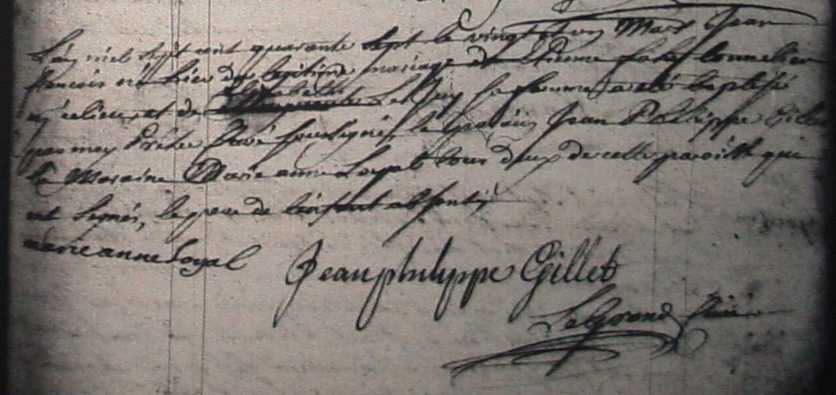 L'an mil sept cent quarante sept le vingt et un Mars Jean
francois né hier du legitime mariage de
et de Elisabeth sa femme a été baptisé
par moy Prêtre Curé soussigné, le parain Jean Philippe Gillet
la Maraine Marie anne Loyal tous deux de cette paroisse qui
ont signés, le pere de l'enfant absent
marie anne Loyal
Jean philippe Gillet
LeGrand Curé